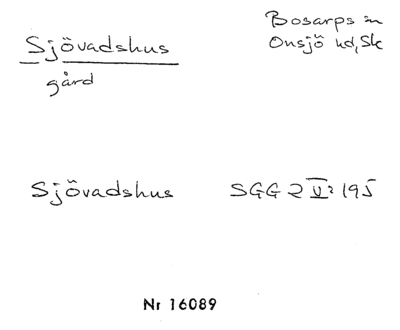 Sjövadshus
gård
Bosarps sn
Onsjö hd, Sk
Sjövadshus SGG 2 V: 195
Nr 16089